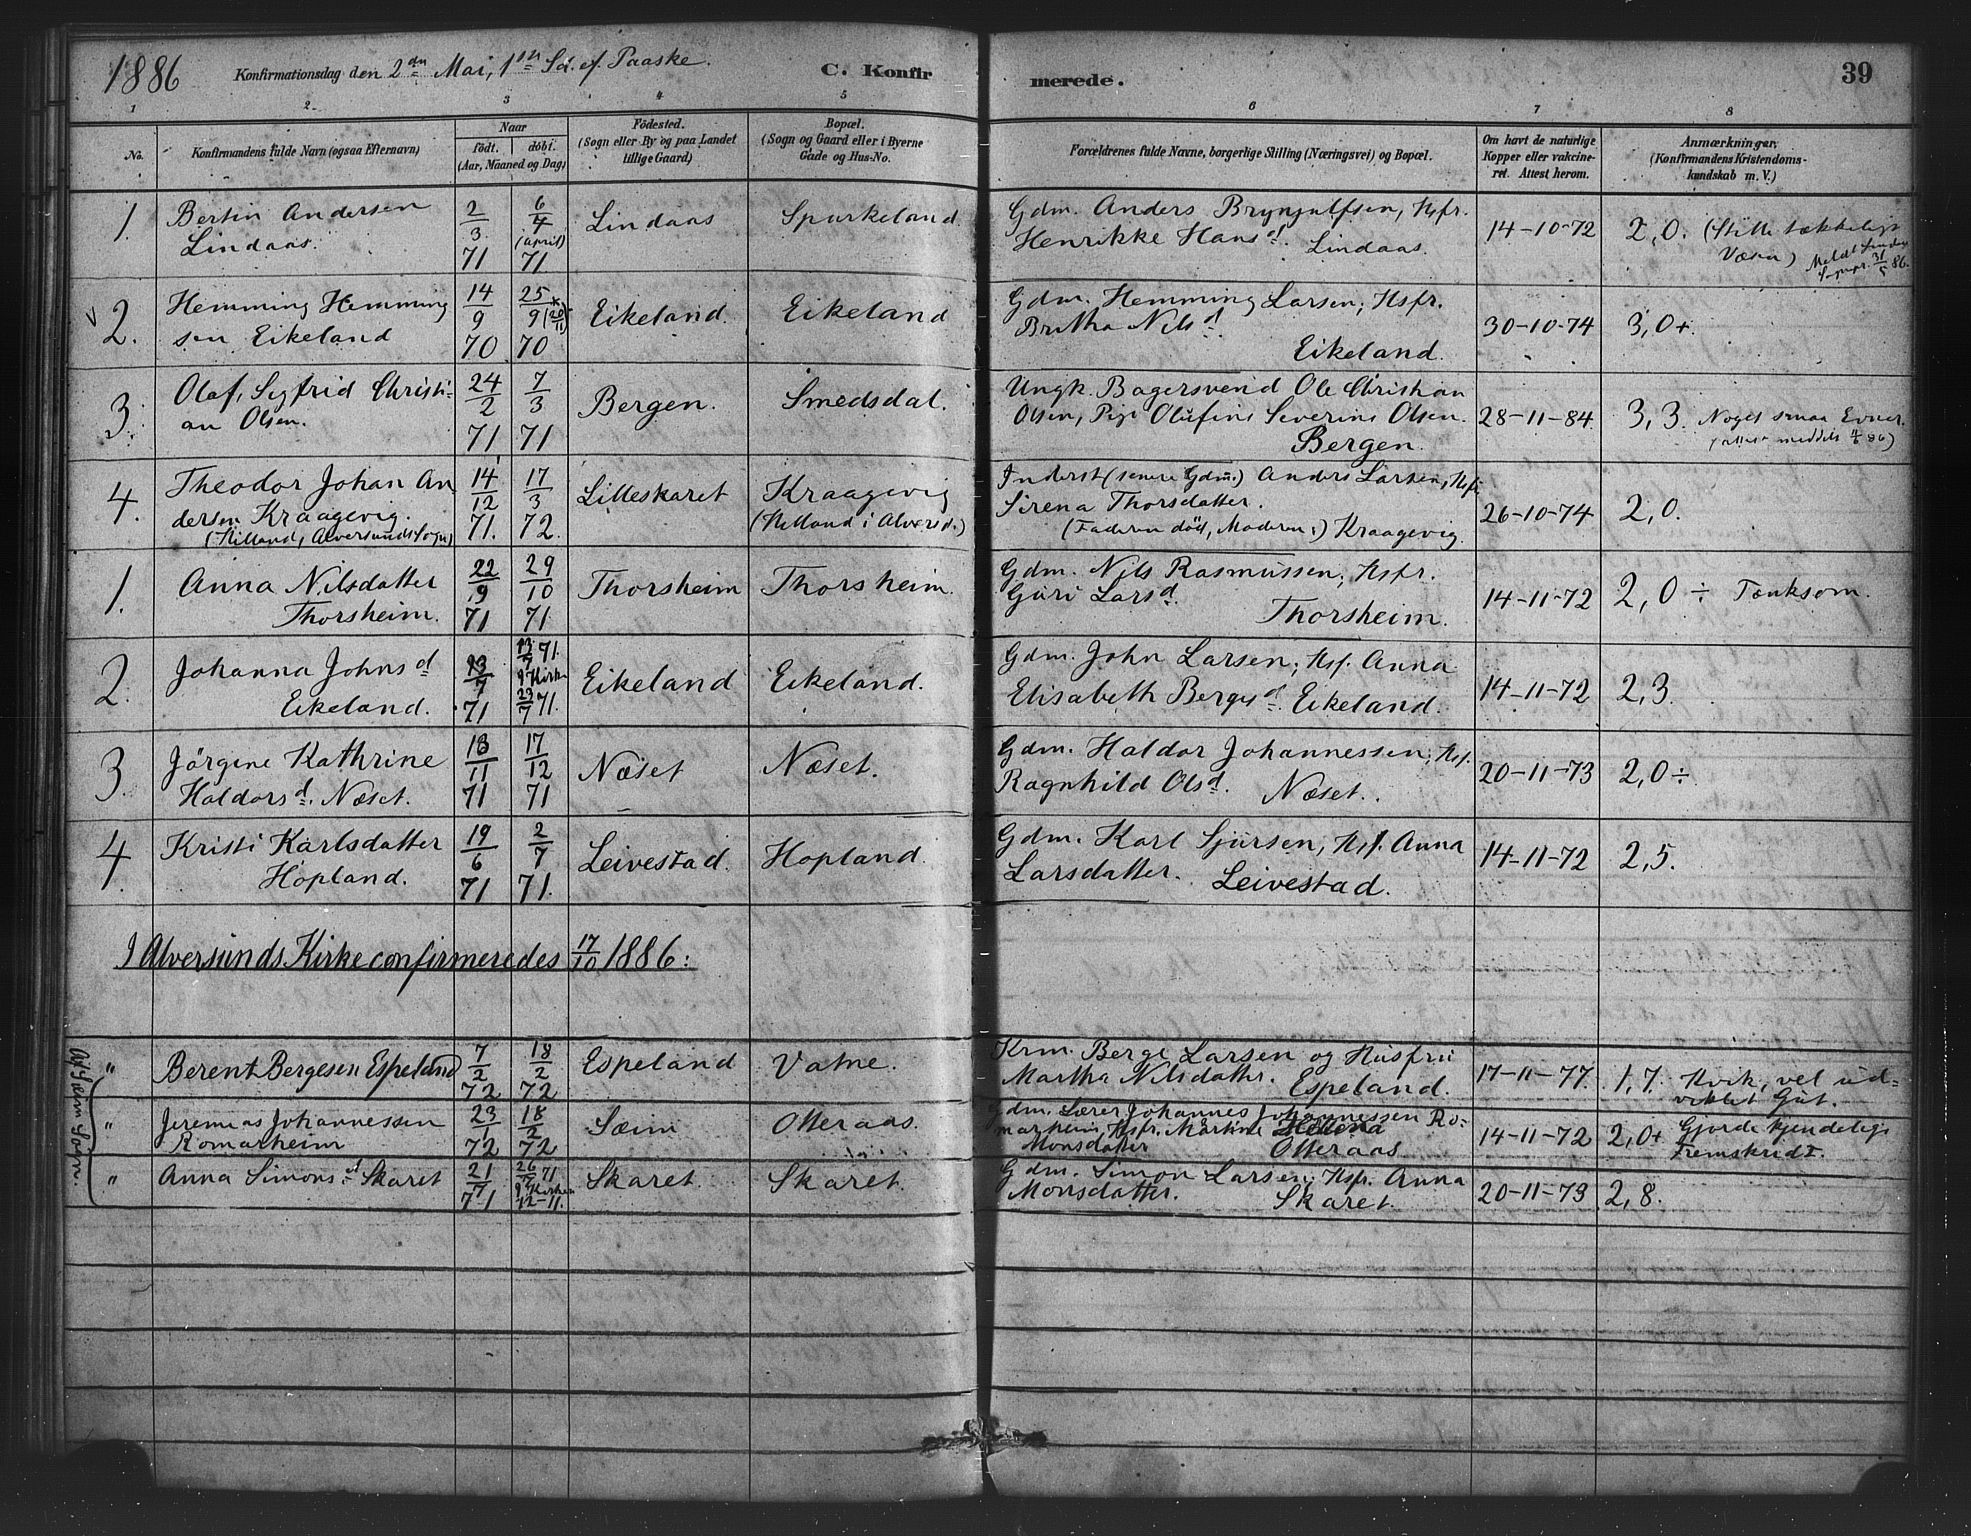 1886 Konfirmationsdag den 2den Mai, 1ste Sö. ef. Paaske. C. Konfirmerede. 39
1 2 3 4 5 6 7 8
No. Konfirmandens fulde Navn (ogsaa Efternavn)
Naar
födt. döbt.
(Aar, Maaned og Dag)
Födested.
(Sogn eller By og paa Landet
tillige Gaard)
Bopæl.
(Sogn og Gaard eller i Byerne
Gade og Hus-No.
Forældrenes fulde Navne, borgerlige Stilling (Næringsvei) og Bopæl.
Om havt de naturlige
Kopper eller vakcine-
ret. Attest herom.
Anmærkninger,
(Konfirmandens Kristendoms-
kundskab m. V.)
1. Bertin Andersen
Lindaas.
2/3 71
6/4 (april) 71
Lindaas
Spurkeland
Gdm. Anders Brynjulfsen, Hsfr.
Henrikke Hansd. Lindaas.
14-10-72
2,0. (Stille tækkeligt
Væsen)
31/5 86.
2. Hemming Hemming
sen Eikeland
14/9 70
25/9 (20/11) 70
Eikeland.
Eikeland
Gdm. Hemming Larsen, Hsfr.
Britha Nilsd
Eikeland.
30-10-74
3,0+.
3. Olaf, Sigfrid Christi-
an Olsen.
24/2 71
7/3 71
Bergen.
Smedsdal.
Ungk. Bagersvend Ole Christian
Olsen, Pige Olufine Severine Olsen.
Bergen.
28-11-84.
3,3. Noget smaa Evner.
4. Theodor Johan An
dersen Kraagevig.
(Helland, Alversunds Sogn)
14/12 71.
17/3 72.
Lilleskaret
Kraagevig
(Helland i Alversd.)
Inderst (senere Gdm.) Anders Larsen, Hsfr
Sirena Thorsdatter.
(Faderen död, Moderen:) Kraagevig.
26-10-74
2,0.
1. Anna Nilsdatter
Thorsheim.
22/9 71
29/10 71.
Thorsheim
Thorsheim.
Gdm. Nils Rasmussen, Hsfr.
Guri Larsd.
Thorsheim.
14-11-72
2,0 ÷ Tænksom.
2. Johanna Johnsd
Eikeland.
13/7 71
13/7 71.
i Kirke
23/7 71.
Eikeland
Eikeland.
Gdm. John Larsen, Hsf. Anna
Elisabeth Bergesd. Eikeland.
14-11-72
2,3.
3. Jörgine Kathrine
Haldorsd. Næset.
18/11 71
17/12 71
Næset
Næset.
Gdm. Haldor Johannessen, Hsf.
Ragnhild Olsd. Næset.
20-11-73
2,0÷
4. Kristi Karlsdatter
Hopland.
19/6 71
2/7 71.
Leivestad
Hopland.
Gdm. Karl Sjursen, Hsf. Anna
Larsdatter. Leivestad.
14-11-72
2,5.
I Alversunds Kirke confirmeredes 17/10 1886:
Af Sæim Sogn.
" Berent Bergesen Espeland
7/2 72
18/2 72
Espeland
Vatne.
Krm. Berge Larsen og Husfru
Martha Nilsdatter. Espeland.
17-11-77.
1,7. Kvik, vel ud-
viklet Gut.
" Jeremias Johannessen
Romarheim
23/1 72
18/2 72
Sæim
Otteraas.
Gdm. Lærer Johannes Johannessen Ro-
marheim, Hsfr. Martine Helena
Monsdatter Otteraas
14-11-72
2,0+ Gjorde kjendeligt
Fremskridt.
" Anna Simonsd Skaret
21/7 71
26/7 71
i Kirken
12-11.
Skaret
Skaret
Gdm. Simon Larsen, Hsfr. Anna
Monsdatter. Skaret.
20-11-73
2,8.